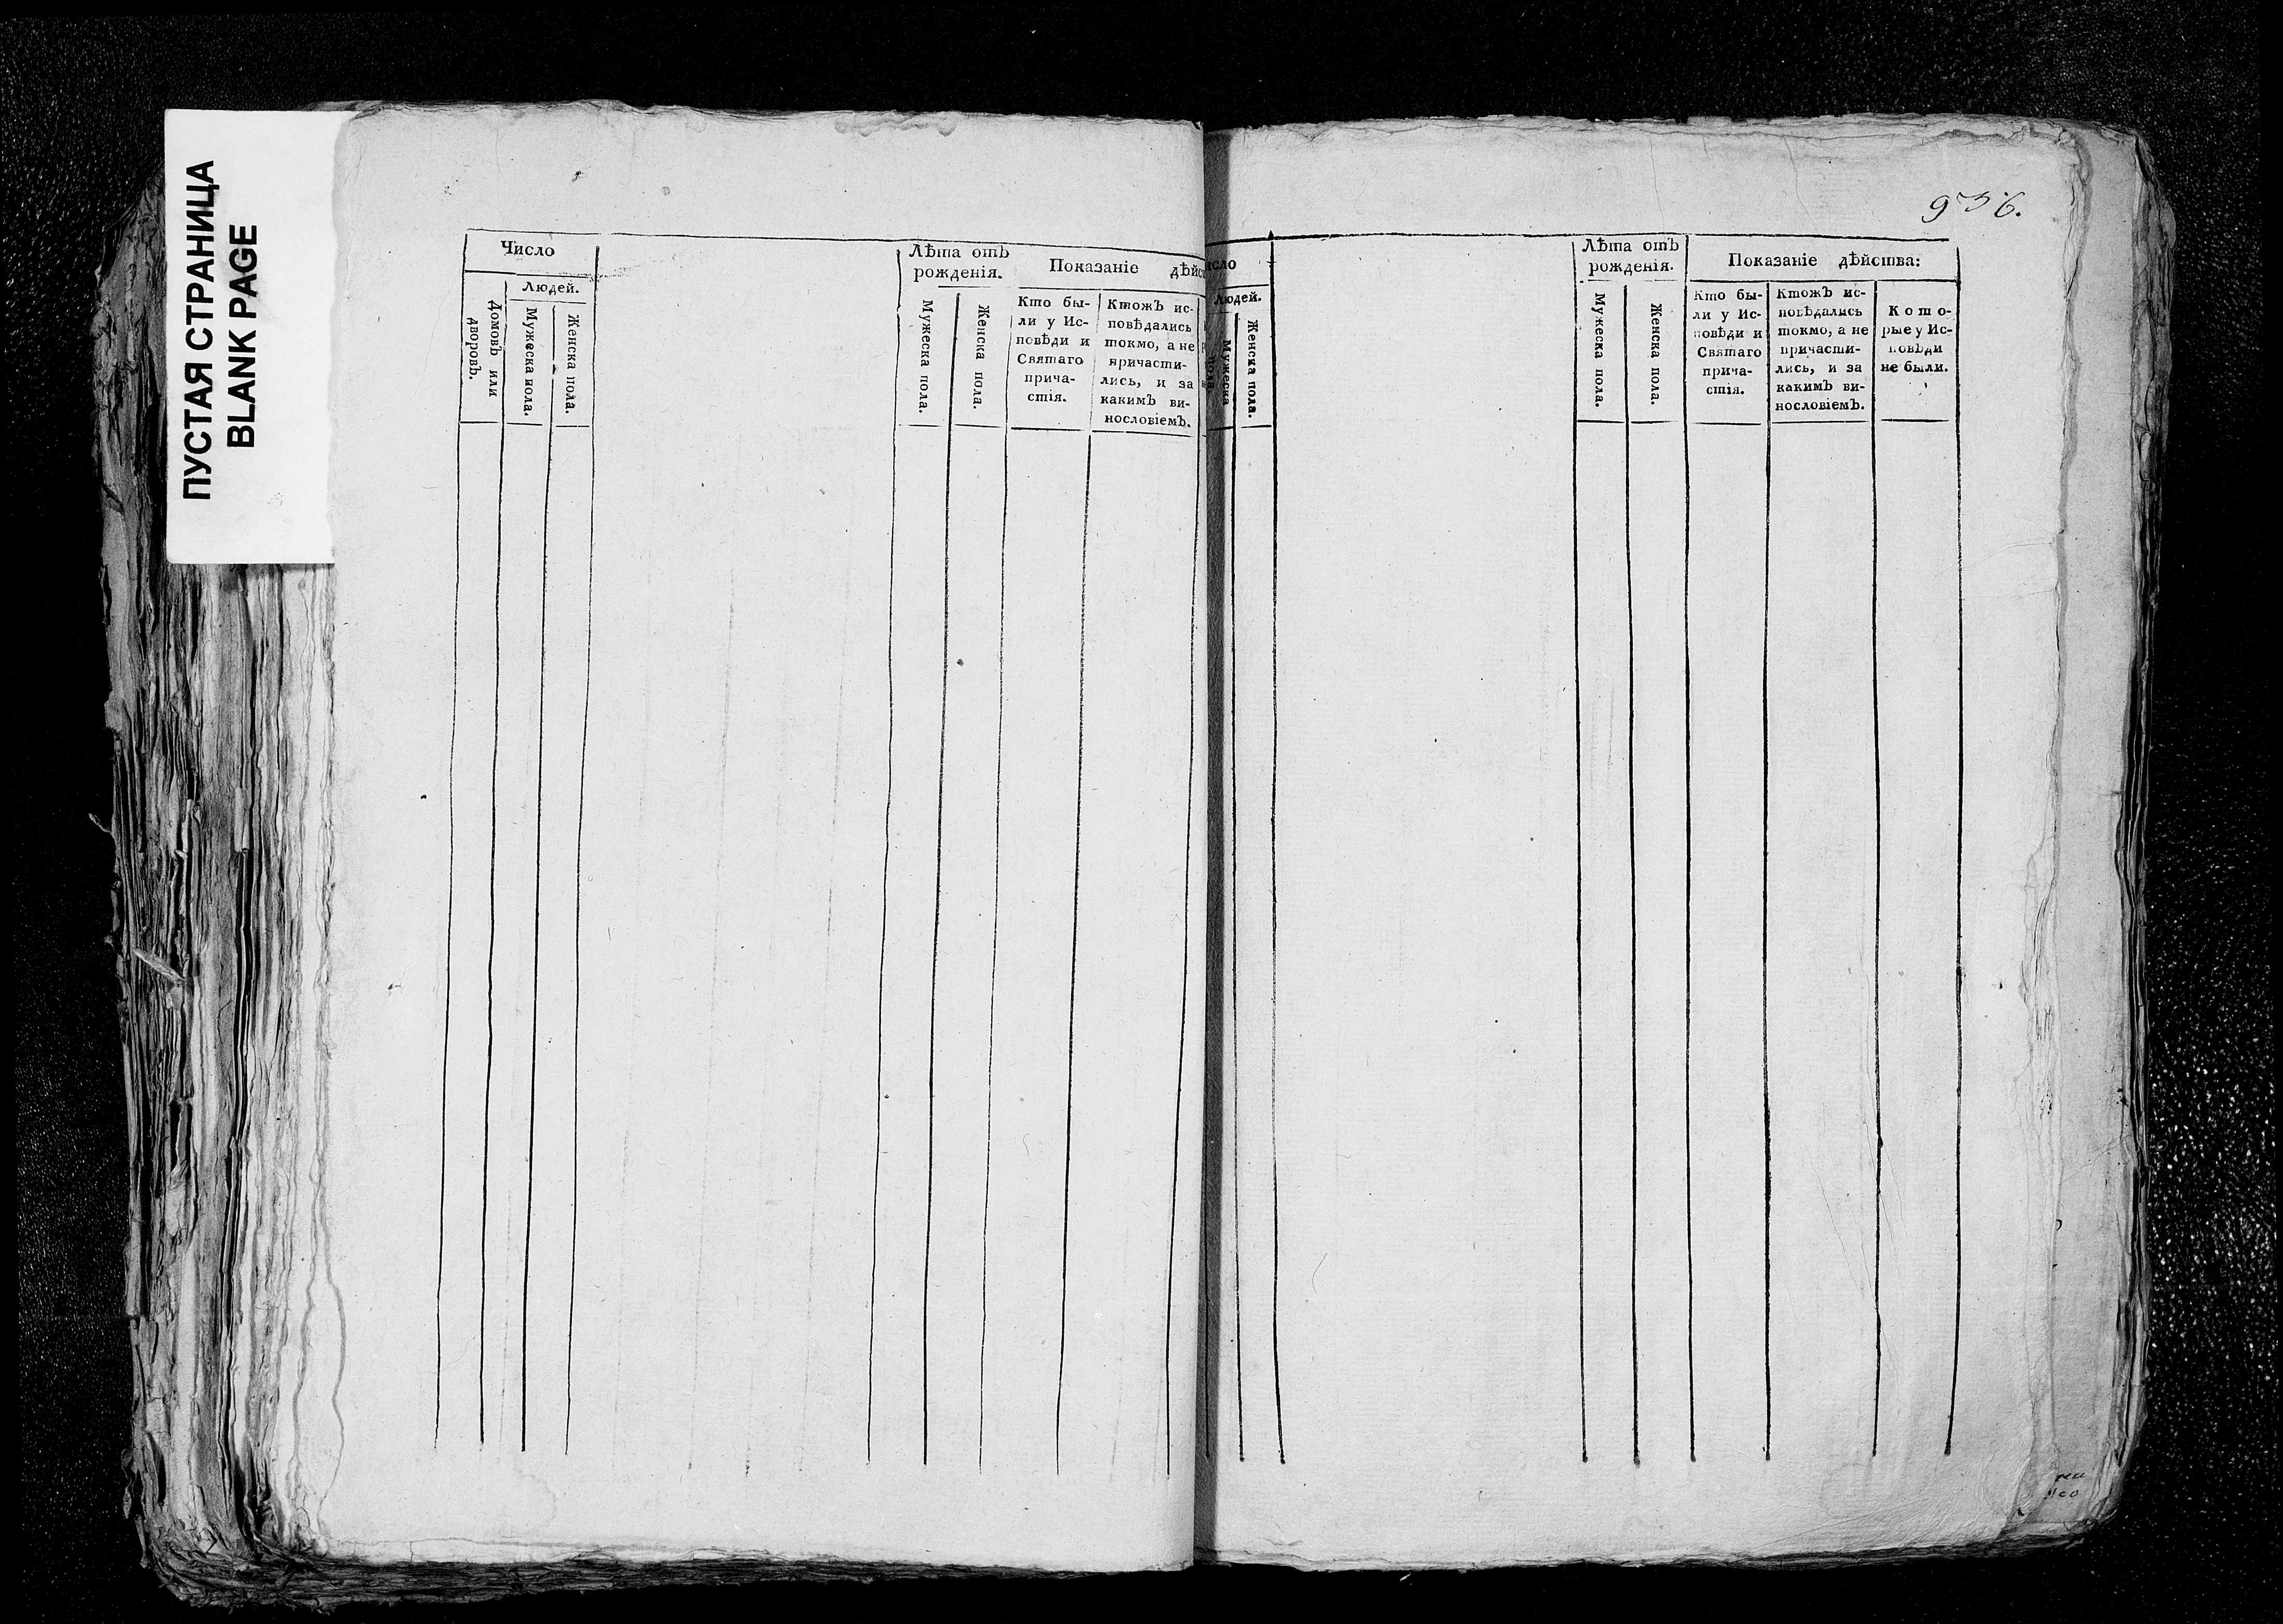 ПУСТАЯ СТРАНИЦА
BLANK PAGE
Число
Людей.
Домовъ или
дворовъ.
Мужеска пола.
Женска пола.
Лѣта отъ
рожденія.
Мужеска пола.
Женска пола.
Показаніе дѣйс
Кто бы-
ли у Ис-
повѣди и
Святаго
прича-
стія.
Ктожъ ис-
повѣдались
токмо, а не
причасти-
лись, и за
какимъ ви-
нословіемъ.
936.
исло
Людей.
Мужеска
пола.
Женска пола.
Лѣта отъ
рожденія.
Мужеска пола.
Женска пола.
Показаніе дѣйства:
Кто бы-
ли у Ис-
повѣди и
Святаго
прича-
стія.
Ктожъ ис-
повѣдались
токмо, а не
причасти-
лись, и за
какимъ ви-
нословіемъ.
Кото-
рые у Ис-
повѣди
не были.